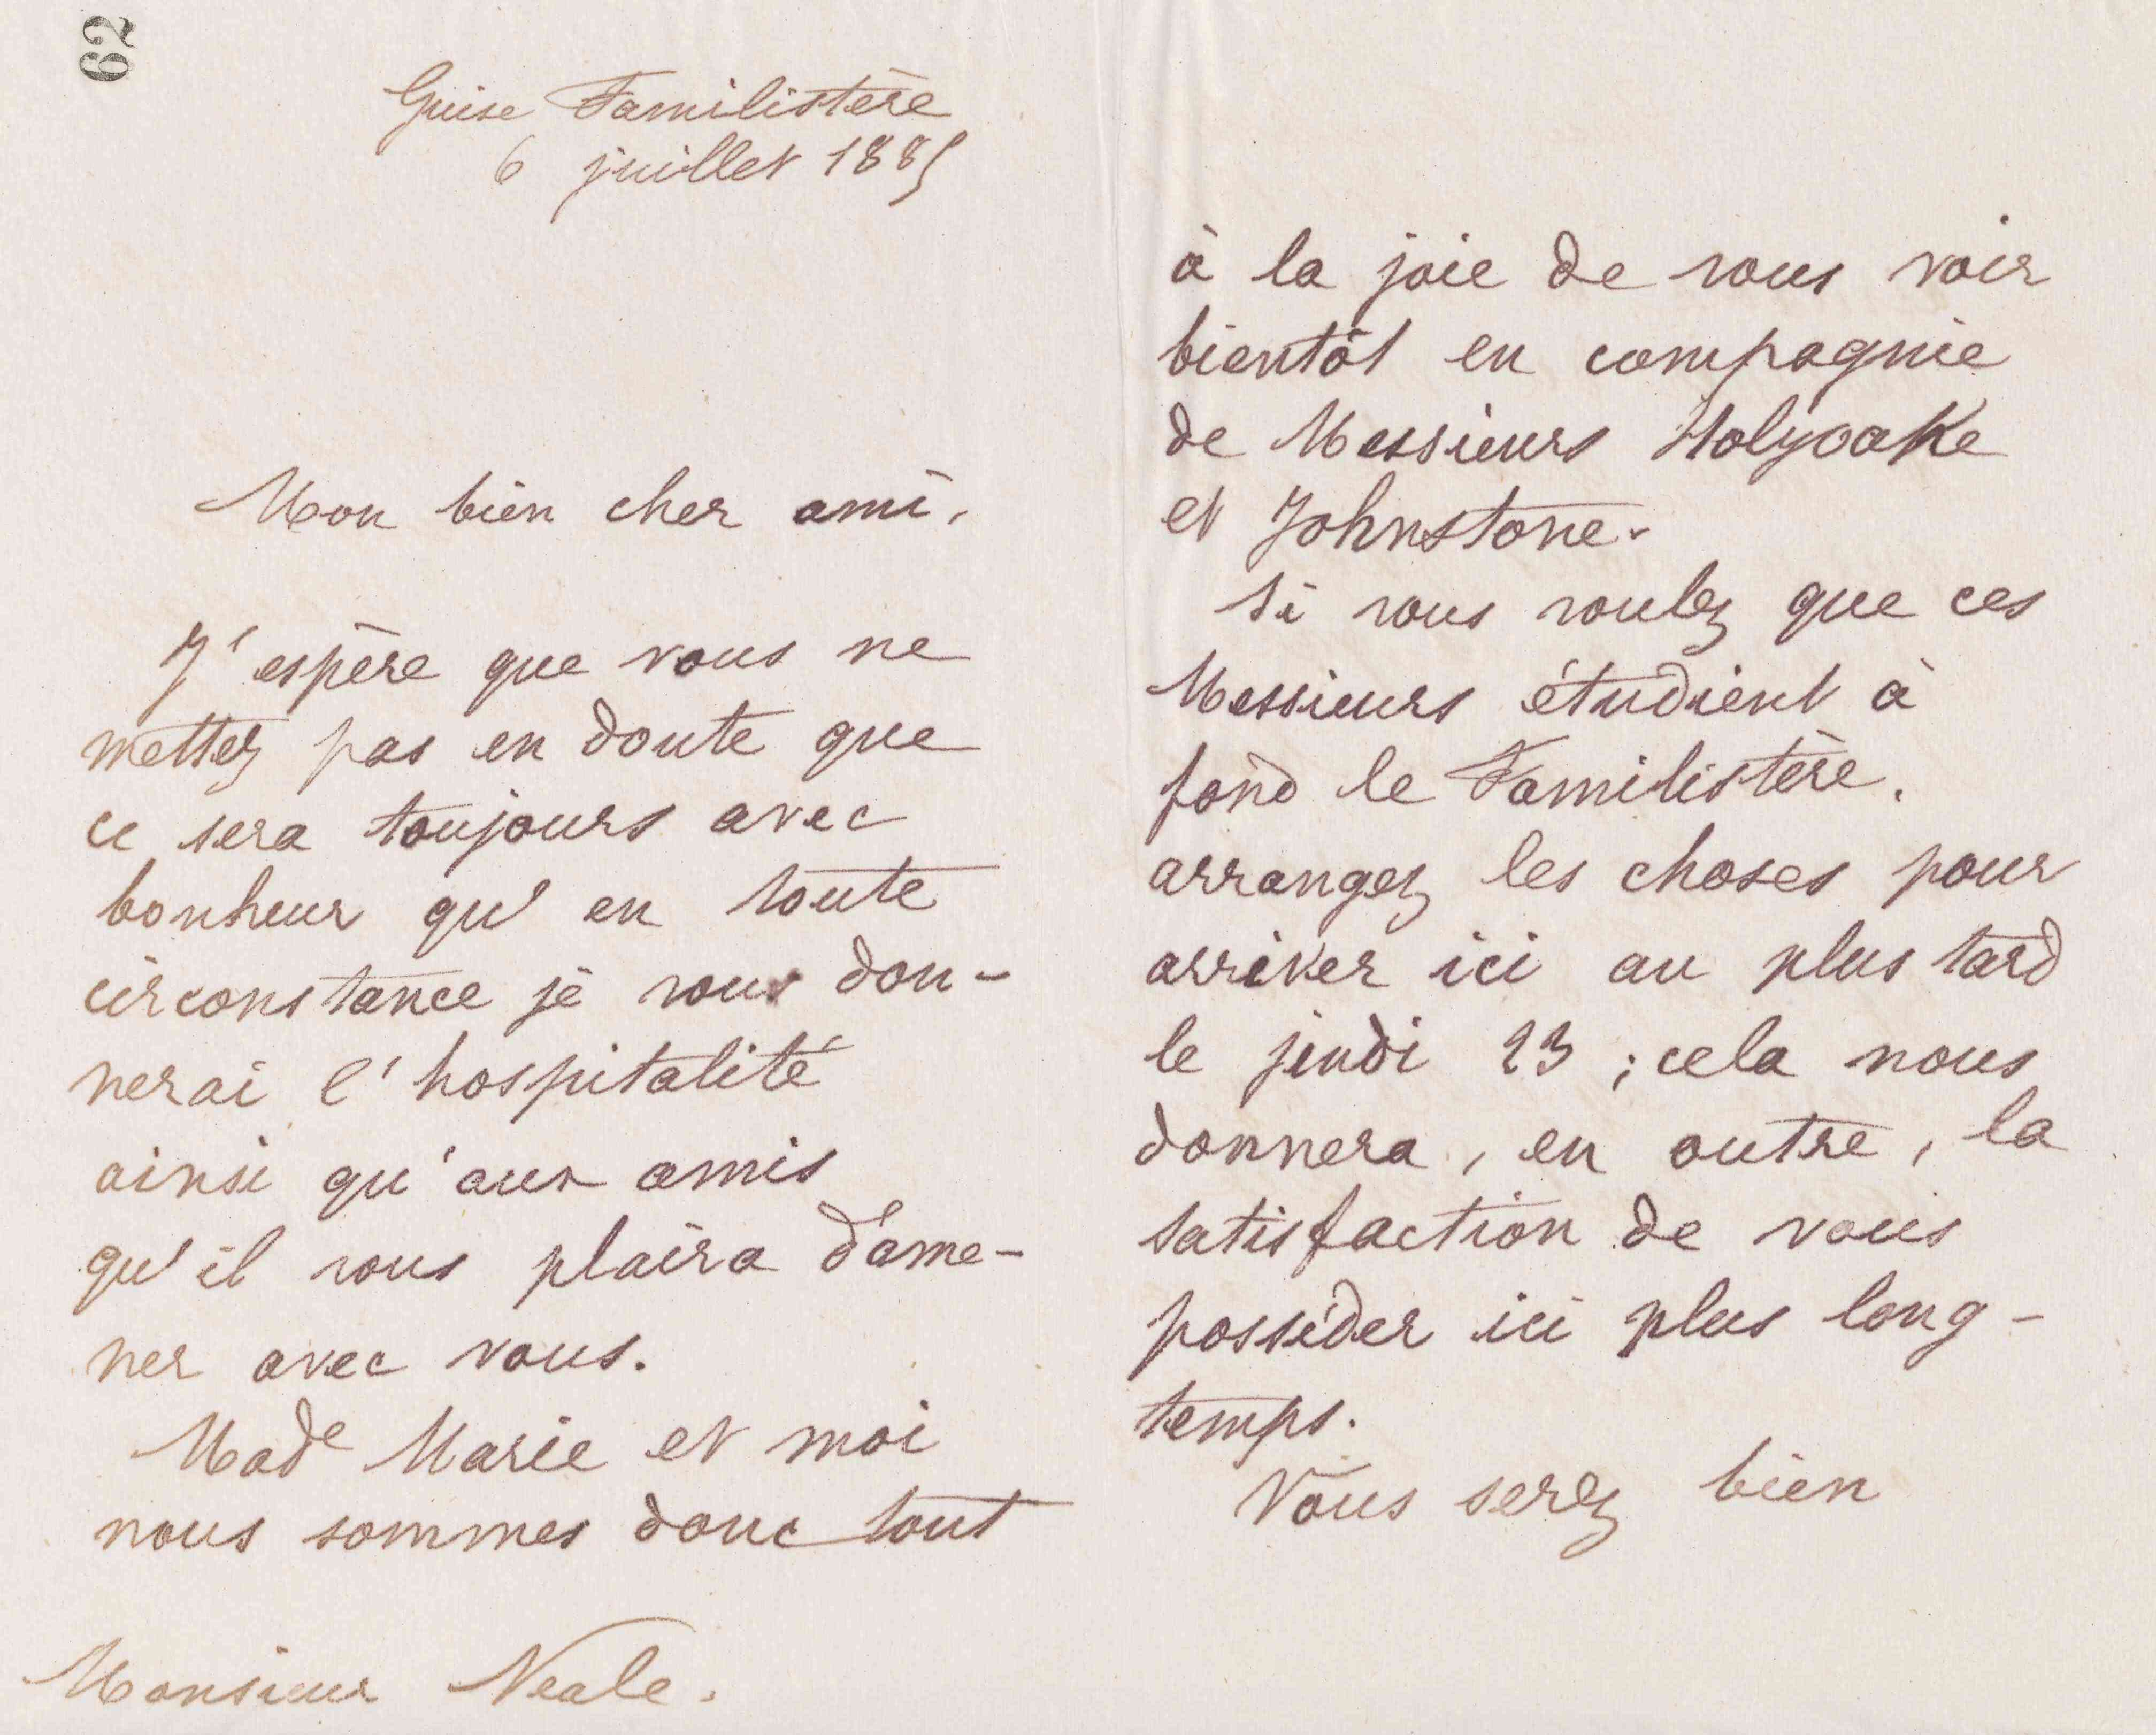 62
Guise Familistère
6 juillet 1885
Mon bien cher ami,
J'espère que vous ne
mettez pas en doute que
ce sera toujours avec
bonheur qu'en toute
circonstance je vous don-
nerai l'hospitalité
ainsi qu'aux amis
qu'il vous plaira d'ame-
ner avec vous.
Made Marie et moi
nous sommes donc tout
Monsieur Neale.
à la joie de vous voir
bientôt en compagnie
de Messieurs Holyoake
et Johnstone.
Si vous voulez que ces
Messieurs étudient à
fond le Familistère,
arrangez les choses pour
arriver ici au plus tard
le jeudi 23 ; cela nous
donnera, en outre, la
satisfaction de vous
posséder ici plus long-
temps.
Vous serez bien